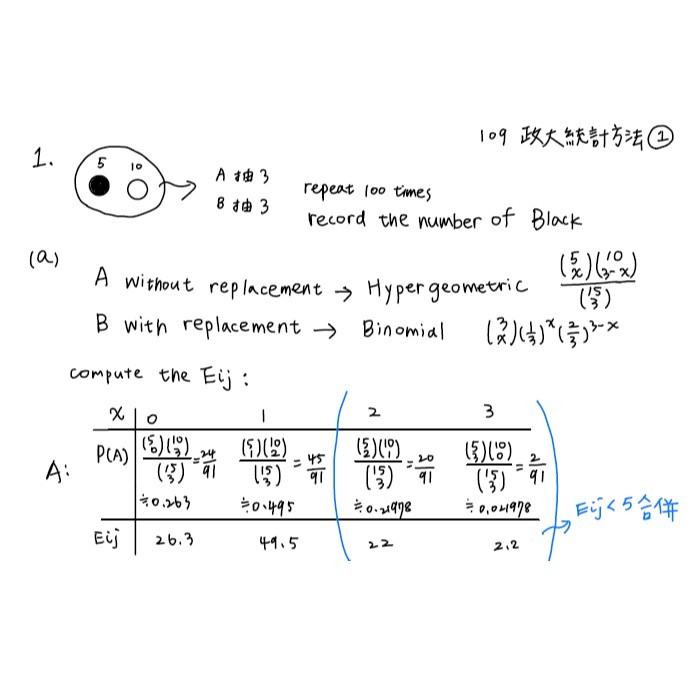 109 政大統計方法①
1.
5 10
A 抽 3
B 抽 3
repeat 100 times
record the number of Black
(a)
A without replacement → Hypergeometric (5 x)(10 3-x) / (15 3)
B with replacement → Binomial (3 x)(1/3)^x(2/3)^3-x
compute the Eij :
A:
x 0 1 2 3
P(A) (5 0)(10 3)/(15 3) = 24/91 (5 1)(10 2)/(15 3) = 45/91 (5 2)(10 1)/(15 3) = 20/91 (5 3)(10 0)/(15 3) = 2/91
≒0.263 ≒0.495 ≒0.21978 ≒0.021978
Eij 26.3 49.5 22 2.2
→ Eij < 5 合併